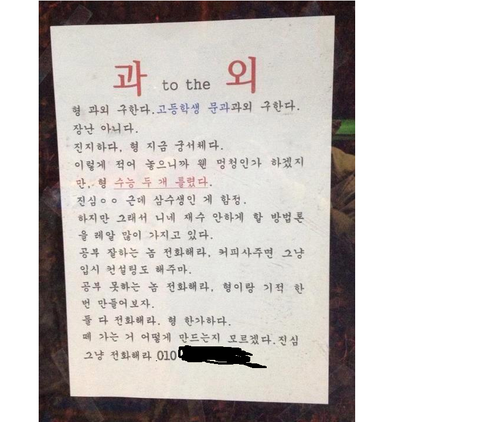 과 to the 외
형 과외 구한다.고등학생 문과과외 구한다.
장난 아니다.
진지하다, 형 지금 궁서체다.
이렇게 적어 놓으니까 웬 멍청인가 하겠지
만, 형 수능 두 개 틀렸다.
진심ㅇㅇ 근데 삼수생인 게 함정.
하지만 그래서 니네 재수 안하게 할 방법론
을 레알 많이 가지고 있다.
공부 잘하는 놈 전화해라, 커피사주면 그냥
입시 컨설팅도 해주마.
공부 못하는 놈 전화해라, 형이랑 기적 한
번 만들어보자.
둘 다 전화해라. 형 한가하다.
떼 가는 거 어떻게 만드는지 모르겠다.진심
그냥 전화해라 010